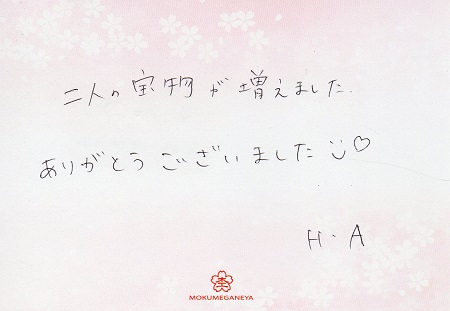 二人の宝物が増えました.
ありがとうございました ◡̈♡
H・A
MOKUMEGANEYA